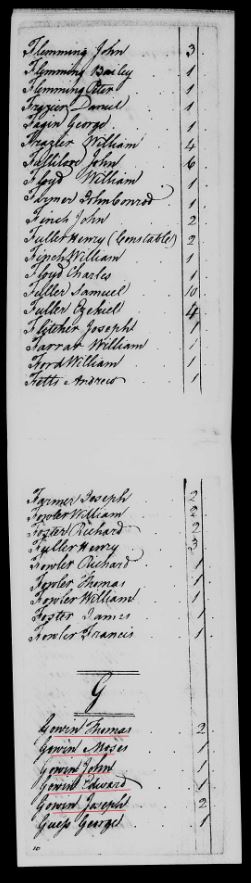 Flemming John 3
Flemming Bailey 1
Flemming Peter 1
Frazier Daniel 1
Fagin George 1
Frazier William 4
Fullilove John 6
Floyd William 1
Farmer John Conrod 1
Finch John 2
Fuller Henry (Constable) 2
Finch William 1
Floyd Charles 1
Fuller Samuel 10
Fuller Ezekiel 4
Flitcher Joseph 1
Farrar William 1
Ford William 1
Fetts Andrew 1
Farmer Joseph 2
Fowler William 2
Foster Richard 2
Fuller Henry 3
Fowler Richard 1
Fowler Thomas 1
Fowler William 1
Foster James 1
Fowler Francis 1
G
Gowin Thomas 2
Gowin Moses 1
Gowen John 1
Gowin Edward 1
Gowen Joseph 2
Guess George 1